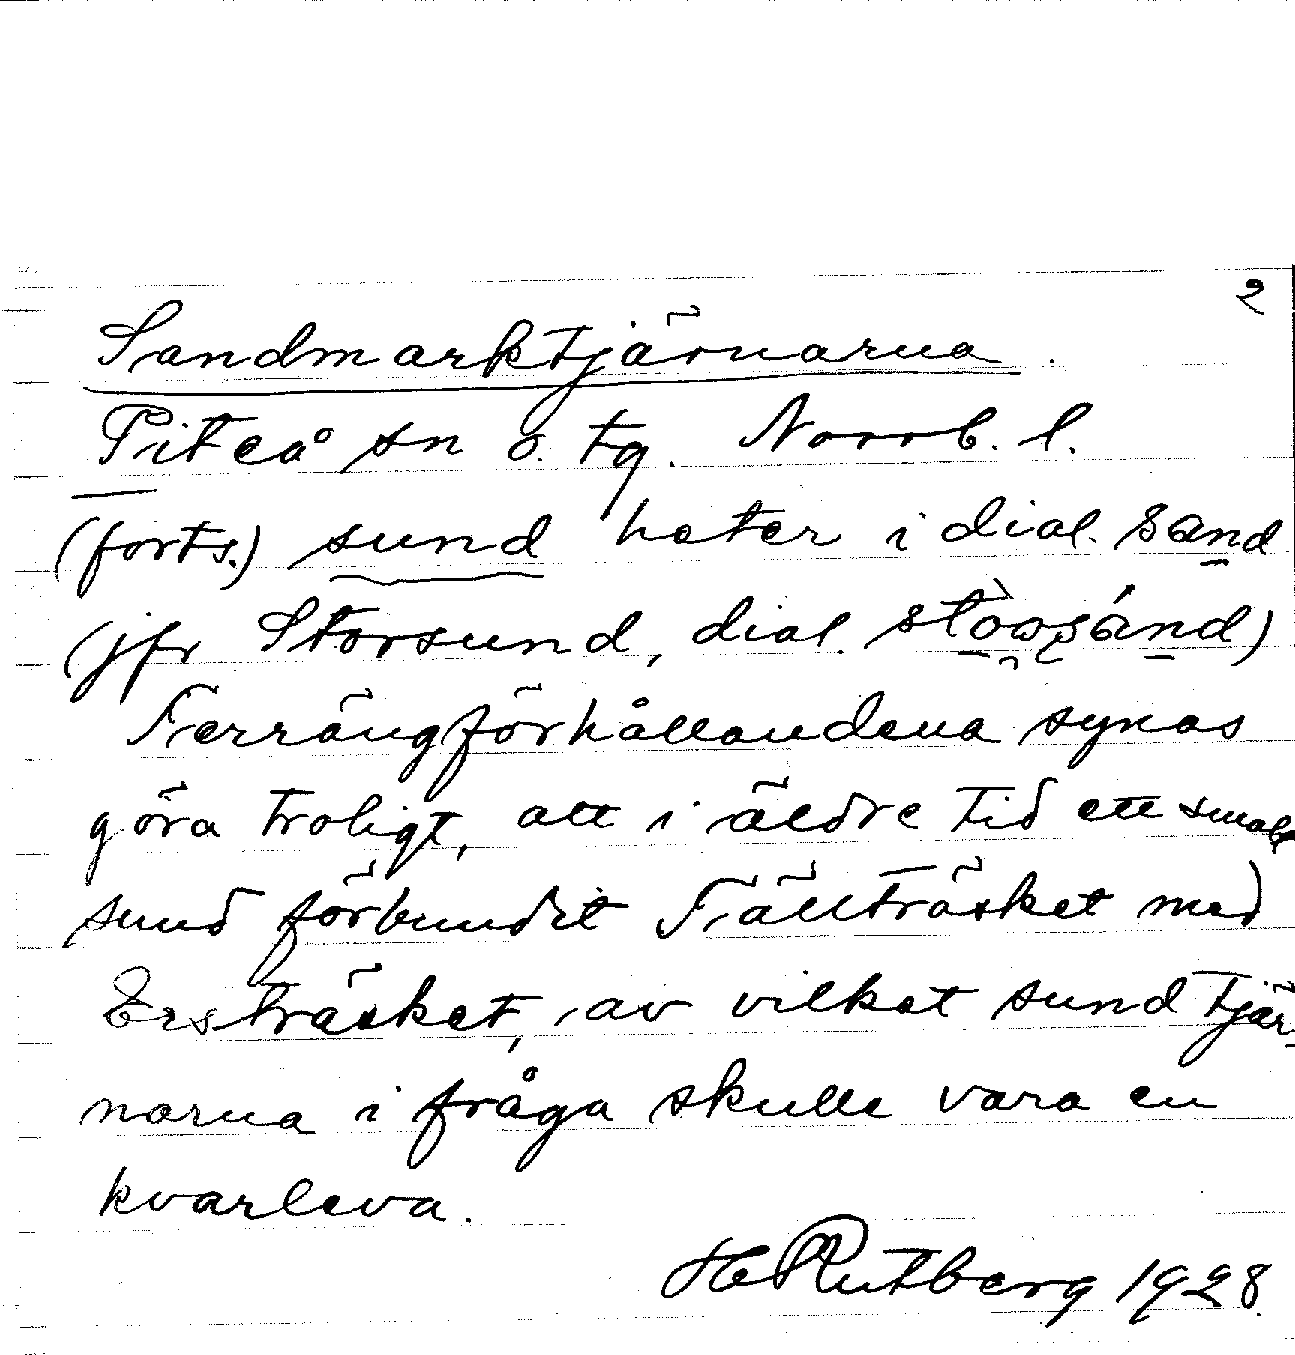 2
Sandmarktjärnarna.
Piteå sn o. tg. Norrb. l.
(forts.) sund heter i dial. sand
(jfr Storsund, dial.
Terrängförhållandena synas
göra troligt, att i äldre tid ett smalt
sund förbundit Fällträsket med
Ersträsket, av vilket sund tjär-
narna i fråga skulle vara en
kvarleva.
H Rutberg 1928.